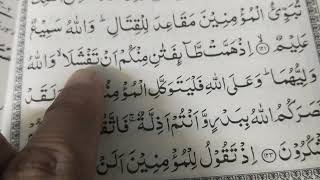 تُبَوِّئُ الْمُؤْمِنِيْنَ مَقَاعِدَ لِلْقِتَالِ ؕ وَاللّٰهُ سَمِيْعٌ
عَلِيْمٌ ۙ﴿۱۲۱﴾ اِذْ هَمَّتْ طَّآئِفَتٰنِ مِنْكُمْ اَنْ تَفْشَلَا ۙ وَاللّٰهُ
وَلِيُّهُمَا ؕ وَعَلَى اللّٰهِ فَلْيَتَوَكَّلِ الْمُؤْمِنُوْنَ لَقَدْ
نَصَرَكُمُ اللّٰهُ بِبَدْرٍ وَّاَنْتُمْ اَذِلَّةٌ ۚ فَاتَّقُوا
تَشْكُرُوْنَ ﴿۱۲۳﴾ اِذْ تَقُوْلُ لِلْمُؤْمِنِيْنَ اَلَنْ